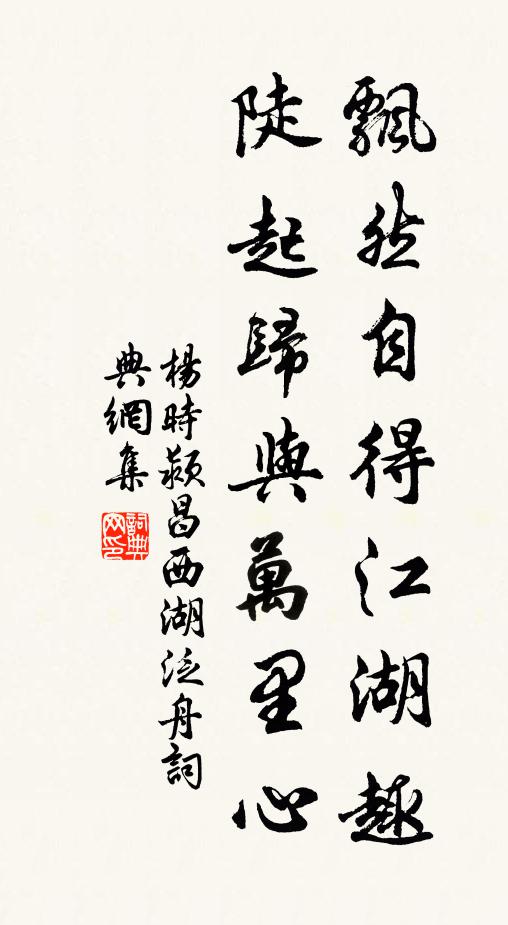 飄然自得江湖趣
陡起歸與萬里心
楊時潁昌西湖泛舟詞
典網集
詞典網印